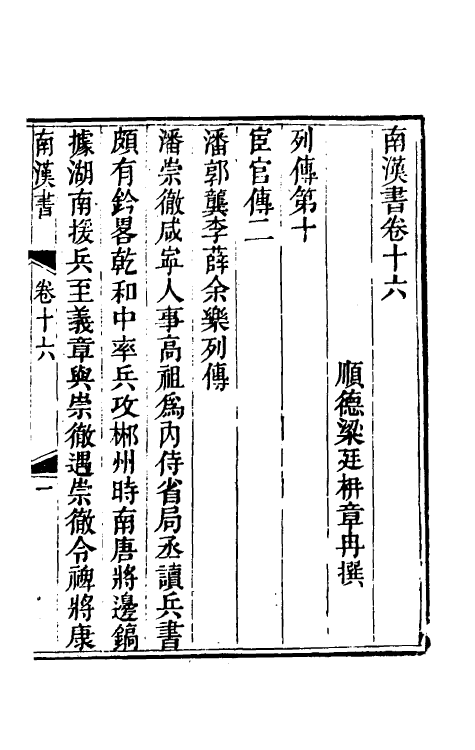 南漢書卷十六
順德梁廷枏章冉撰
列傳第十
宦官傳二
潘郭龔李薛余樂列傳
潘崇徹咸寧人事高祖爲內侍省局丞讀兵書
頗有鈐畧乾和中率兵攻郴州時南唐將邊鎬
據湖南援兵至義章與崇徹遇崇徹令裨將康
南漢書
卷十六
一